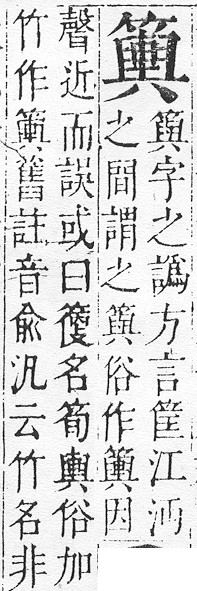 籅字之譌方言筐江沔
之間謂之籅俗作因
聲近而誤或曰籆名筍輿俗加
竹作舊註音兪汎云竹名非